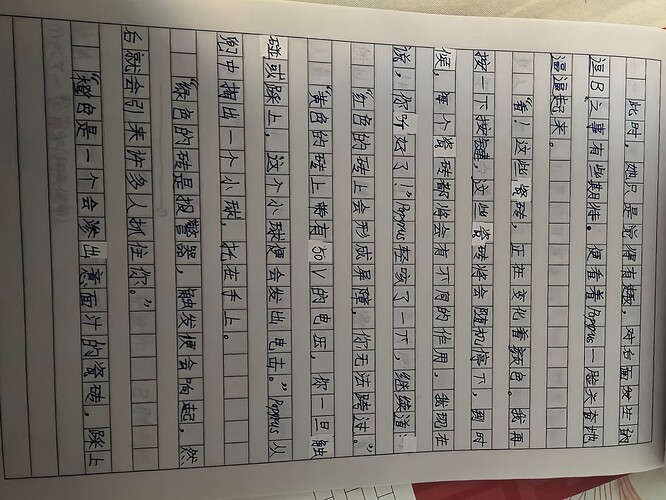 此时，她只是觉得有趣，对后面发生的
逗B之事有些期待。便看着Papyrus一脸笑着地
逗逼起来。
“看！这些瓷砖，正在变化着颜色。我再
按一下按键，这些瓷砖将会随机停下，到时
候，每个瓷砖都将会有不同的作用，我现在
说，你听好了！”Papyrus轻咳了一下，继续道：
“红色的砖上会形成屏障，你无法跨过。”
“黄色的砖上带有50V的电压，你一旦触
碰或踩上，这个小球便会发出电击。”Papyrus从
兜中掏出一个小球，托在手上。
“绿色的砖是报警器，触发便会响起，然
后就会引来许多人抓住你。”
“橙色是一个会渗出意面汁的瓷砖，踩上